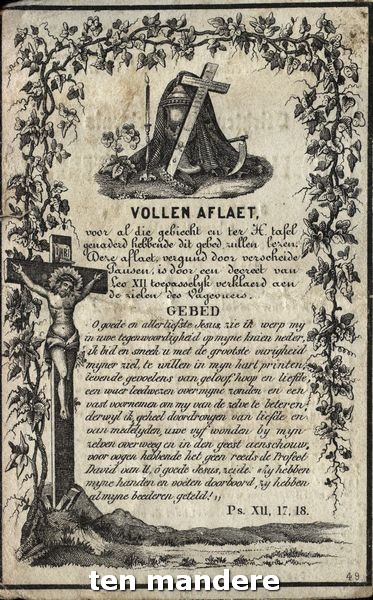 INRI
VOLLEN AFLAET,
voor al die gebiecht en ter H. tafel
genaderd hebbende dit gebed zullen lezen.
Deze aflaet, vergund door verscheide
Pausen, is door een decreet van
Leo XII toepasselyk verklaerd aen
de zielen des Vagevuers.
GEBED
O goede en allerliefste Jesus, zie ik werp my
in uwe tegenwoordigheid op myne knien neder,
ik bid en smeek u met de grootste vurigheid
myner ziel, te willen in myn hart printen,
levende gevoelens van geloof hoop en liefde
een waer leedwezen over myne zonden en een
vast voornemen om my van de zelve te beteren
derwyl ik, geheel doordrongen van liefde en
van medelyden, uwe vyf wonden by myn
zelven overweeg en in den geest aenschouw,
voor oogen hebbende het geen reeds de Profeet
David van U, ó goede Jesus, zeide. "Zy hebben
myne handen en voeten doorboord, zy hebben
al myne beederen geteld!"
Ps. XII, 17, 18.
49
ten mandere